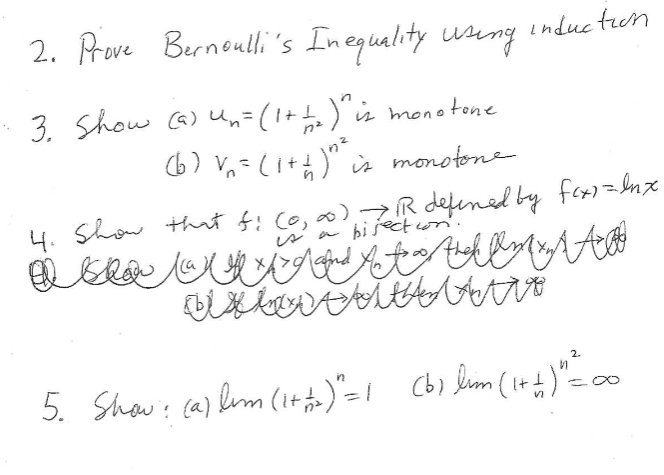 2. Prove Bernoulli's Inequality using induction
3. Show (a) u_n = (1 + 1/n²)^n is monotone
(b) V_n = (1 + 1/n)^n² is monotone
4. Show that f: (0, ∞) → ℝ defined by f(x) = ln x
is a bijection.
5. Show: (a) lim (1 + 1/n²)^n = 1 (b) lim (1 + 1/n)^n² = ∞